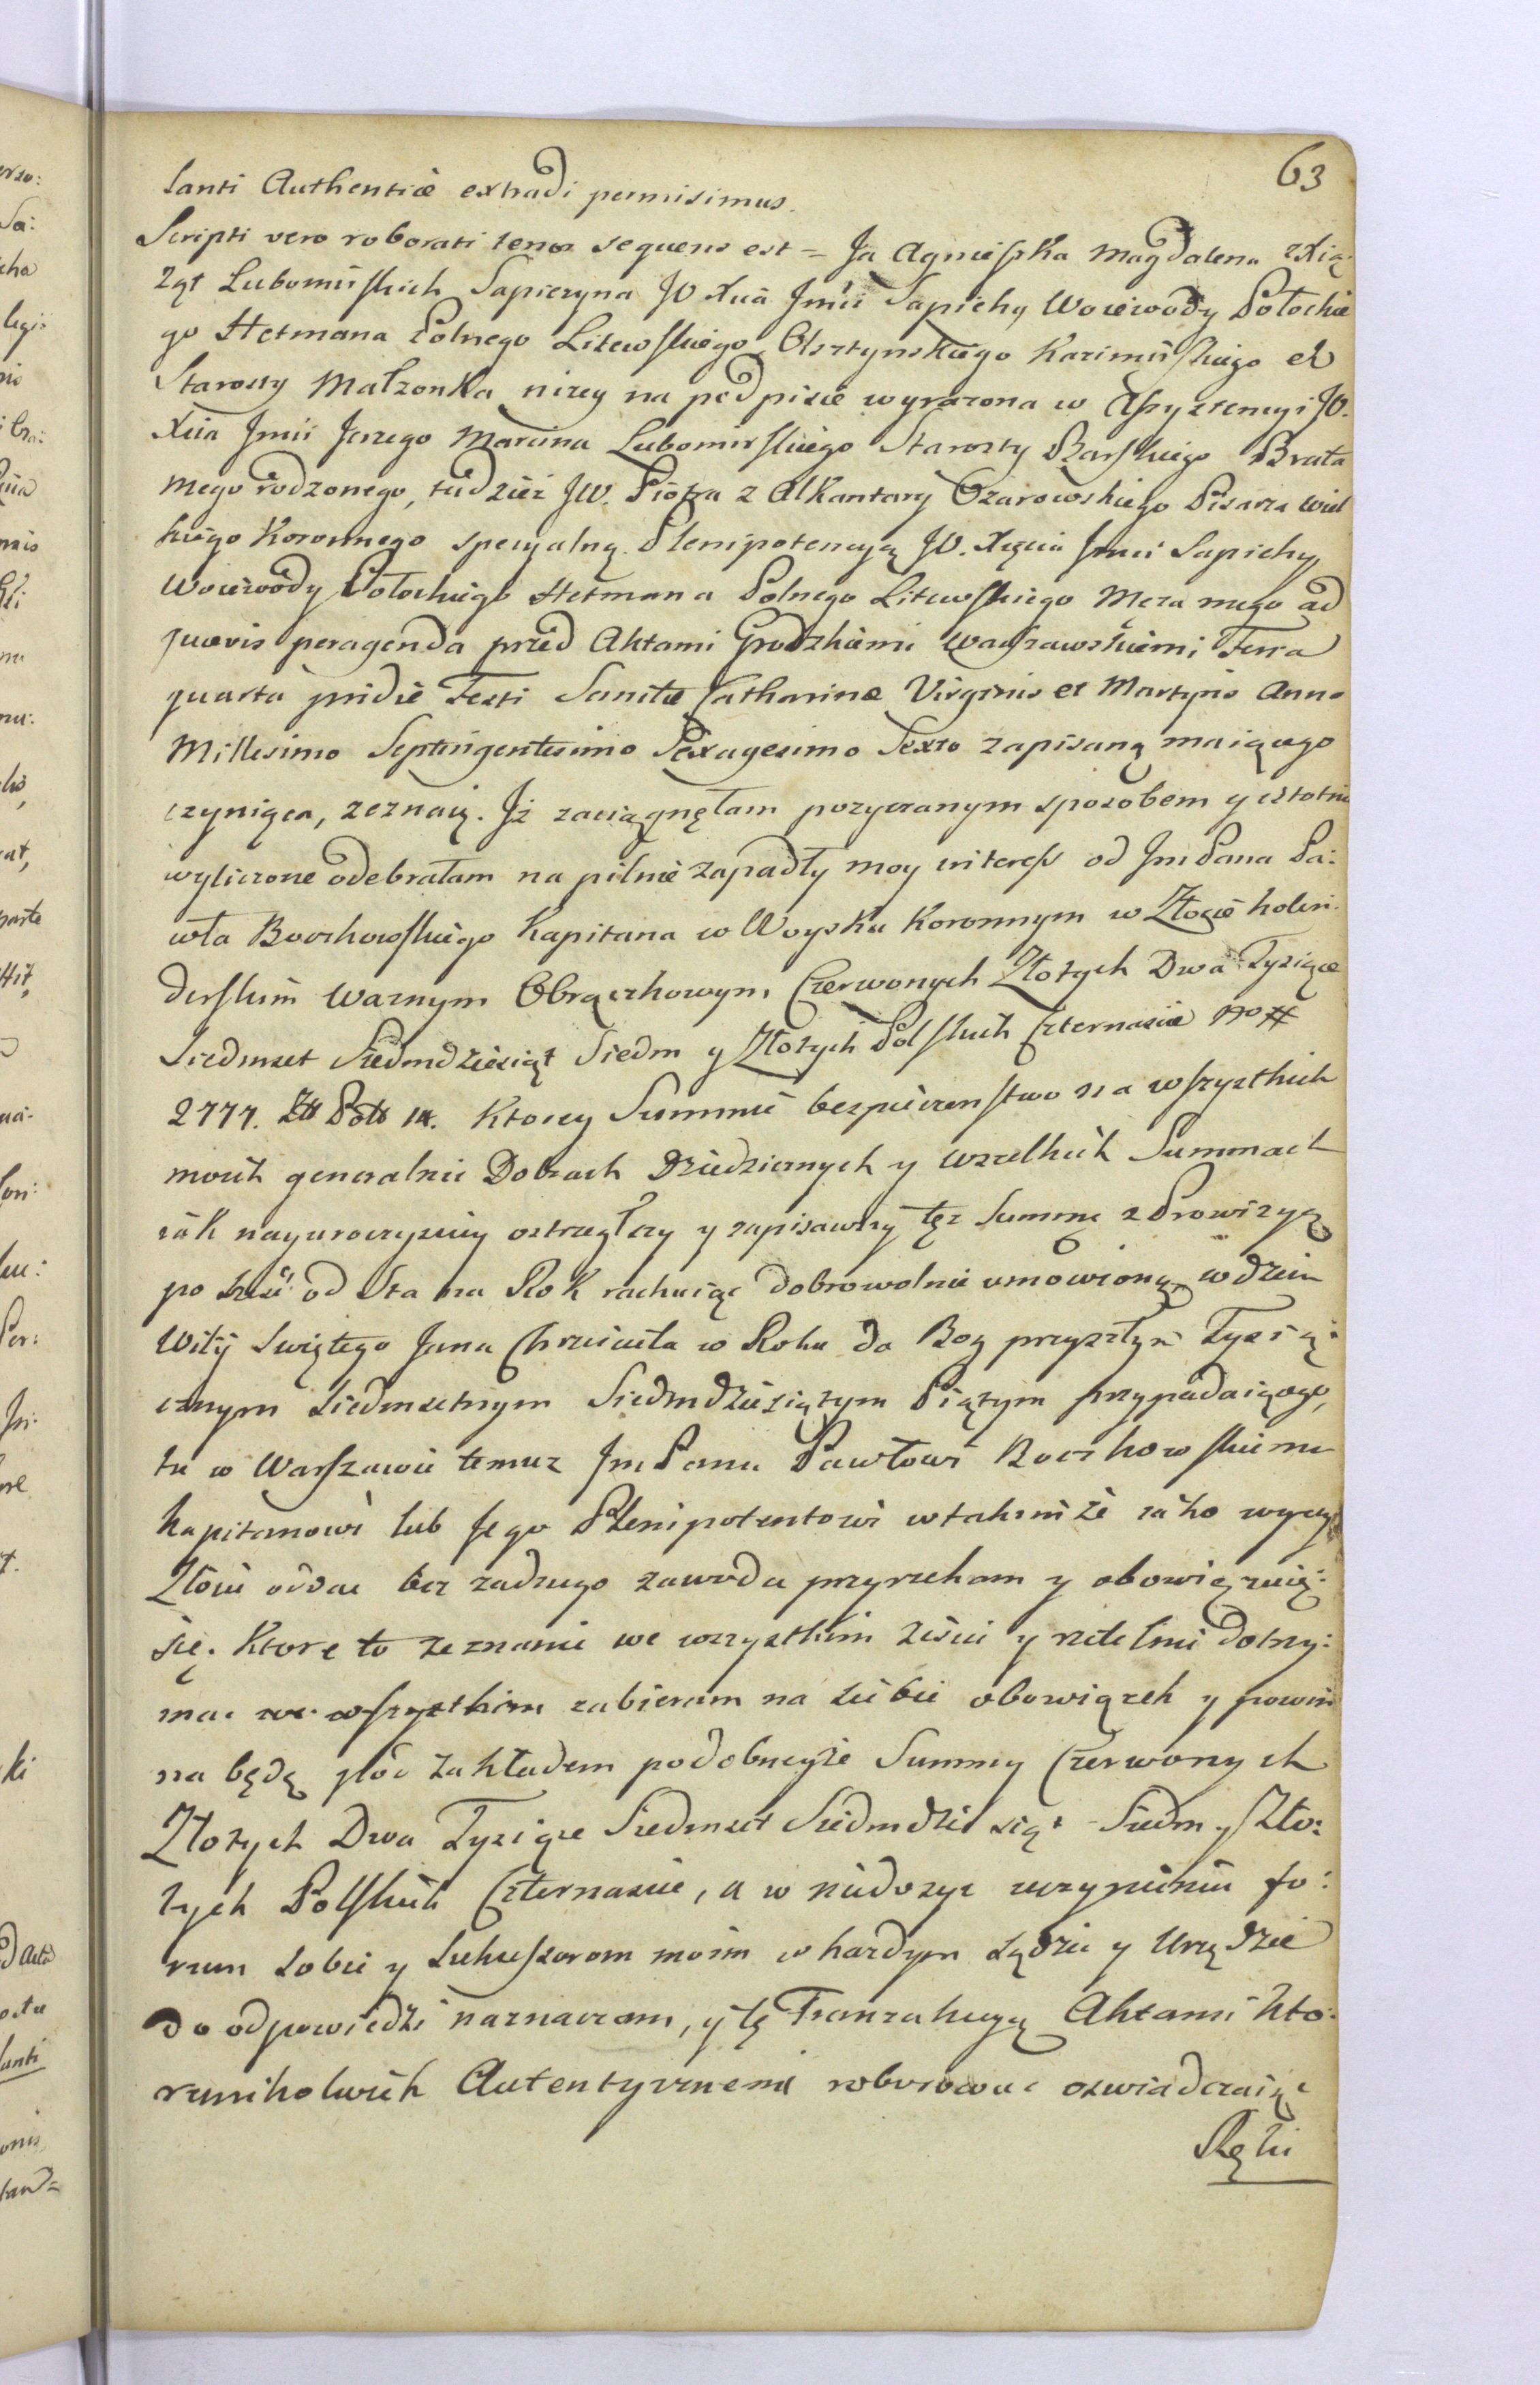 63
lanti Authenticè extradi permisimus.
Scripti vero roborati tenor sequens est = Ja Agnieszka Magdalena z Xią:
żąt Lubomirskich Sapieżyna JO Xcia Jmci Sapiehy Woiewody Połockie
go Hetmana Polnego Litewskiego, Olsztynskiego Kazimirskiego et
Starosty Małzonka nizey na podpisie wyrazona w Assystencyi JO.
Xcia Jmci Jerzego Marcina Lubomirskiego Starosty Barskiego Brata
mego rodzonego, tudziez JW. Piotra z Alkantary Ozarowskiego Pisarza Wiel
kiego Koronnego specyalną Plenipotencyą JO. Xięcia Jmci Sapiehy
Woiewody Połockiego Hetmana Polnego Litewskiego Męza mego ad
quaevis peragenda przed Aktami Grodzkiemi Warszawskiemi, Feria
quarta pridie Festi Sanctae Catharinae Virginis et Martyris Anno
Millesimo Septingentesimo Sexagesimo Sexto zapisaną maiącego
czyniąca, zeznaię. Jż zaciągnęłam pozyczanym sposobem y istotnie
wyliczone odebrałam na pilnie zapadły moy interess od Jm Pana Pa:
wła Boczkowskiego Kapitana w Woysku Koronnym w Złocie holen:
derskim waznym Obrączkowym Czerwonych Złotych Dwa Tysiące
Siedmset Siedmdziesiąt Siedm y Złotych Polskich Czternascie No #
2777. Zł Pols 14. Ktorey Summie bezpieczenstwo na wszystkich
moich generalnie Dobrach Dziedzicznych y wszelkich Summach
iak nayuroczysciey ostrzegłszy y zapisawszy tęz Summę z Prowizyą
po szesć od Sta na Rok rachuiąc dobrowolnie umowioną w dzien
Wilij Swiętego Jana Chrzciciela w Roku da Bog przyszłym Tysią:
cznym Siedmsetnym Siedmdziesiątym Piątym przypadaiącego,
tu w Warszawie temuz Jm Panu Pawłowi Boczkowskiemu
Kapitanowi lub Jego Plenipotentowi w takimże iako wyzey
Złocie oddac bez zadnego zawodu przyrzekam y obowięzuię:
się. Ktore to zeznanie we wszystkim ziścic y rzetelnie dotrzy:
mac we wszystkim zabieram na siebie obowiązek y powin
na będę pod zakładem podobneyże Summy Czerwonych
Złotych Dwa Tysiące Siedmset Siedmdziesiąt Siedm y Zło:
tych Polskich Czternascie, a w niedosyc uczynieniu fo:
rum sobie y Sukcessorom moim w kazdym Sądzie y Urzędzie
do odpowiedzi naznaczam, y tę Tranzakcyą Aktami kto:
remikolwiek Autentycznemi roborowac oswiadczaiąc
Ręki